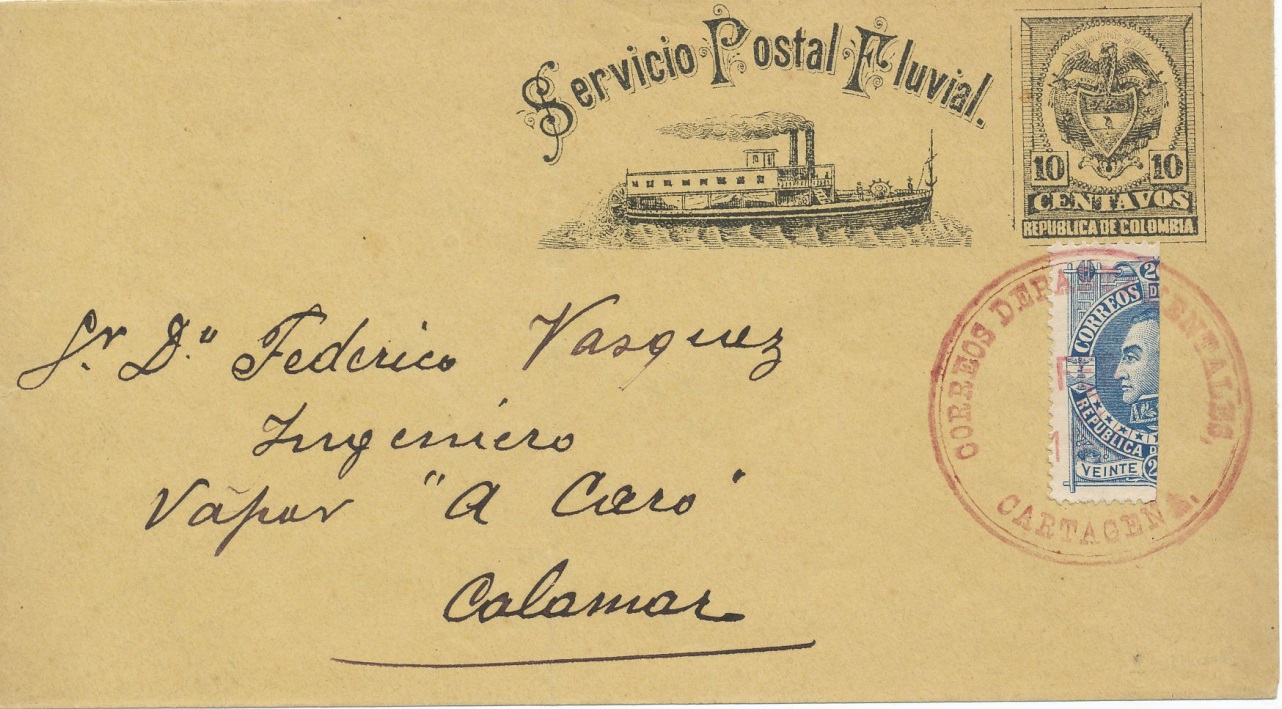 Servicio Postal Fluvial.
10 10
CENTAVOS
REPUBLICA DE COLOMBIA.
CORREOS
REPUBLICA D
VEINTE 2
CORREOS DEPA ENTALES,
CARTAGENA.
Sr. Dn Federico Vasquez
Ingeniero
Vapor "A Caro"
Calamar